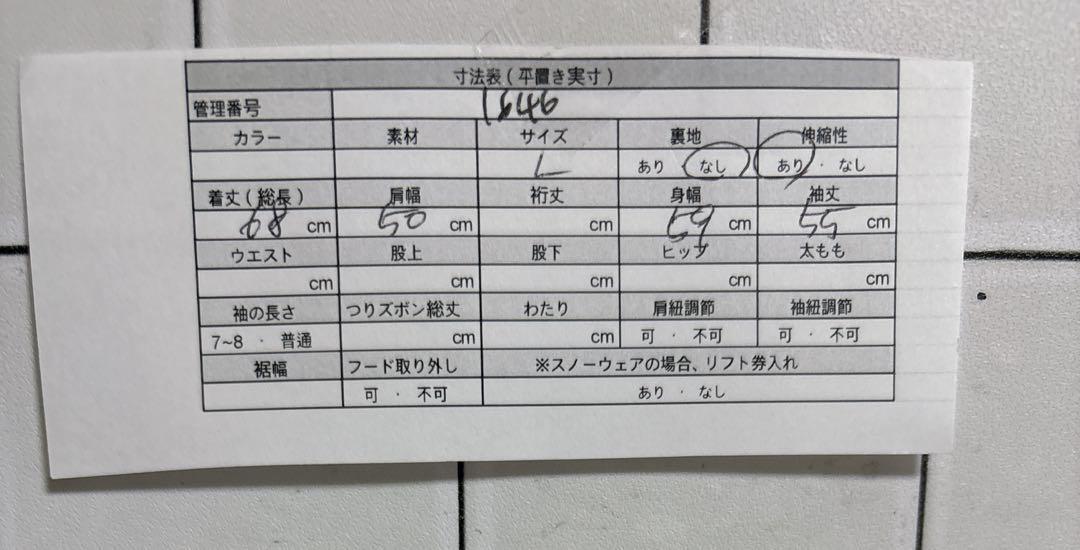 寸法表(平置き実寸)
管理番号 1846
カラー 素材 サイズ 裏地 伸縮性
L あり・なし あり・なし
着丈(総長) 肩幅 裄丈 身幅 袖丈
68 cm 50 cm cm 59 cm 55 cm
ウエスト 股上 股下 ヒップ 太もも
cm cm cm cm cm
袖の長さ つりズボン総丈 わたり 肩紐調節 袖紐調節
7~8・普通 cm cm 可・不可 可・不可
裾幅 フード取り外し ※スノーウェアの場合、リフト券入れ
可・不可 あり・なし